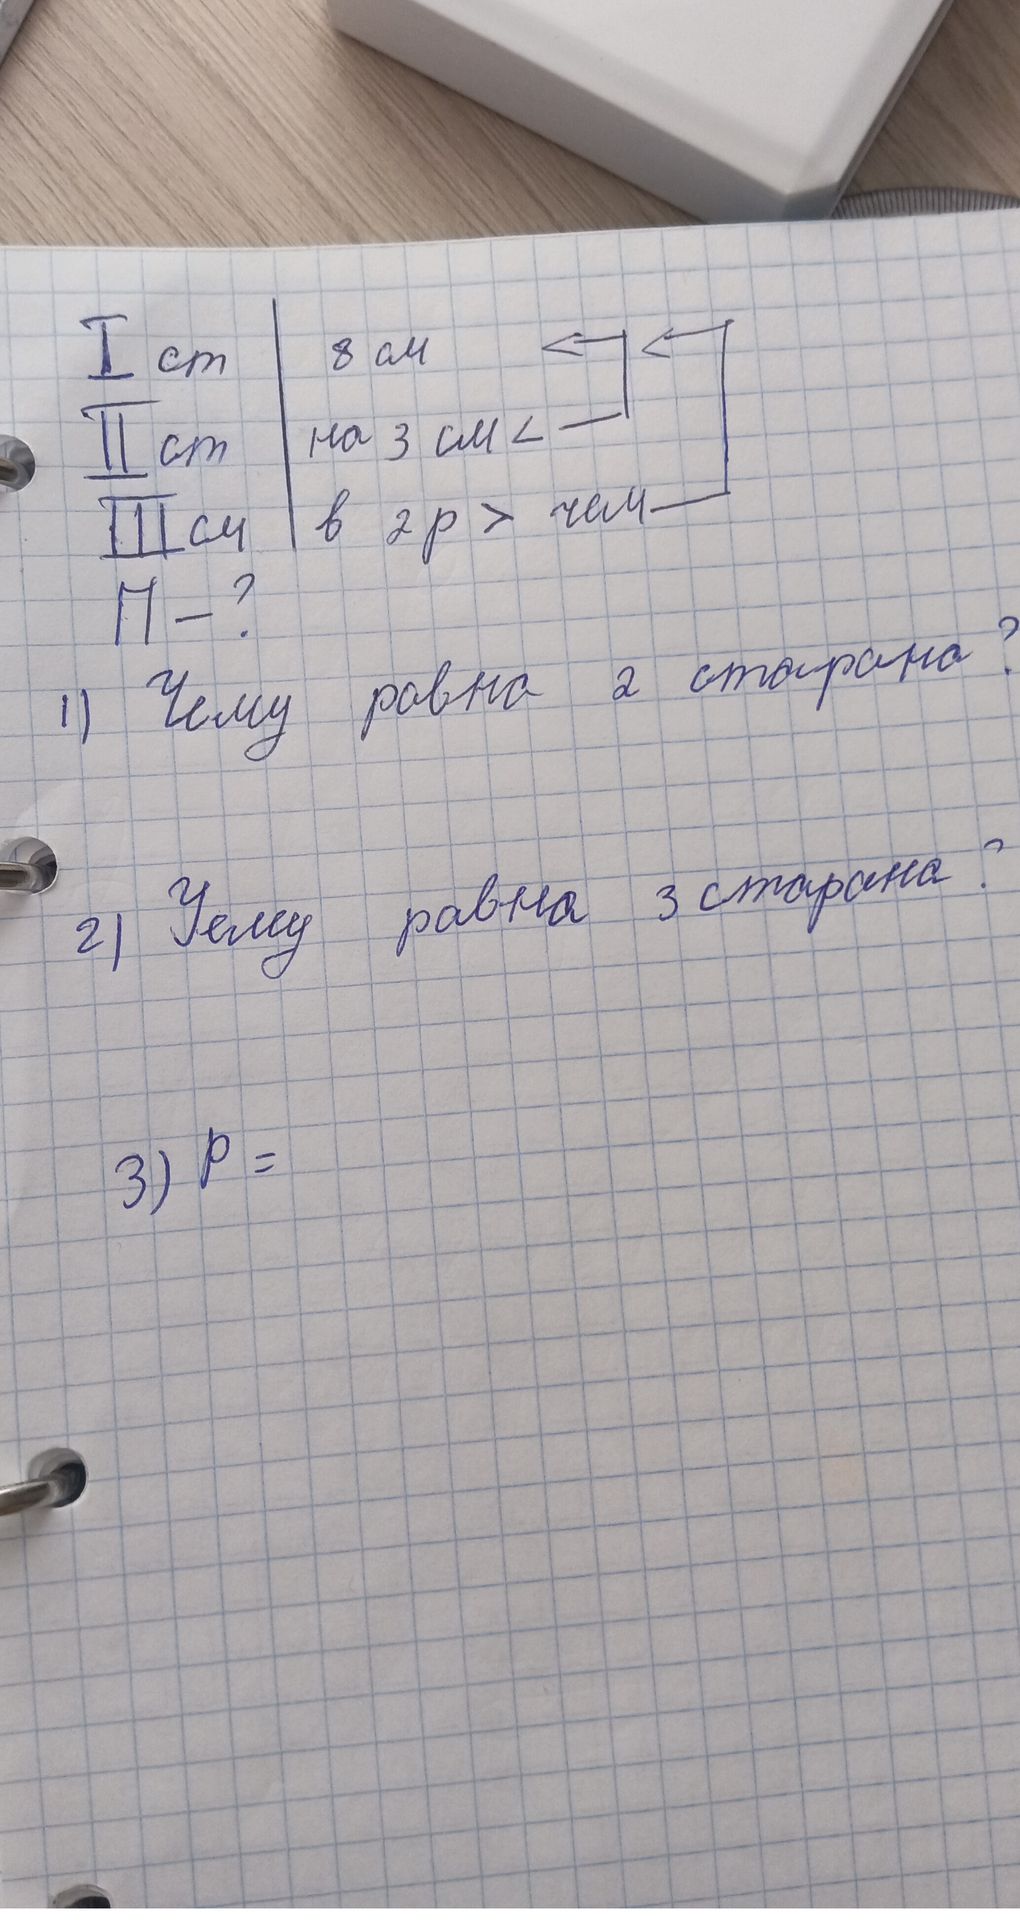 I ст 8 см
II ст на 3 см <
III см в 2 р > чем
П - ?
1) Чему равна 2 старана?
2) Чему равна 3 старана?
3) P =